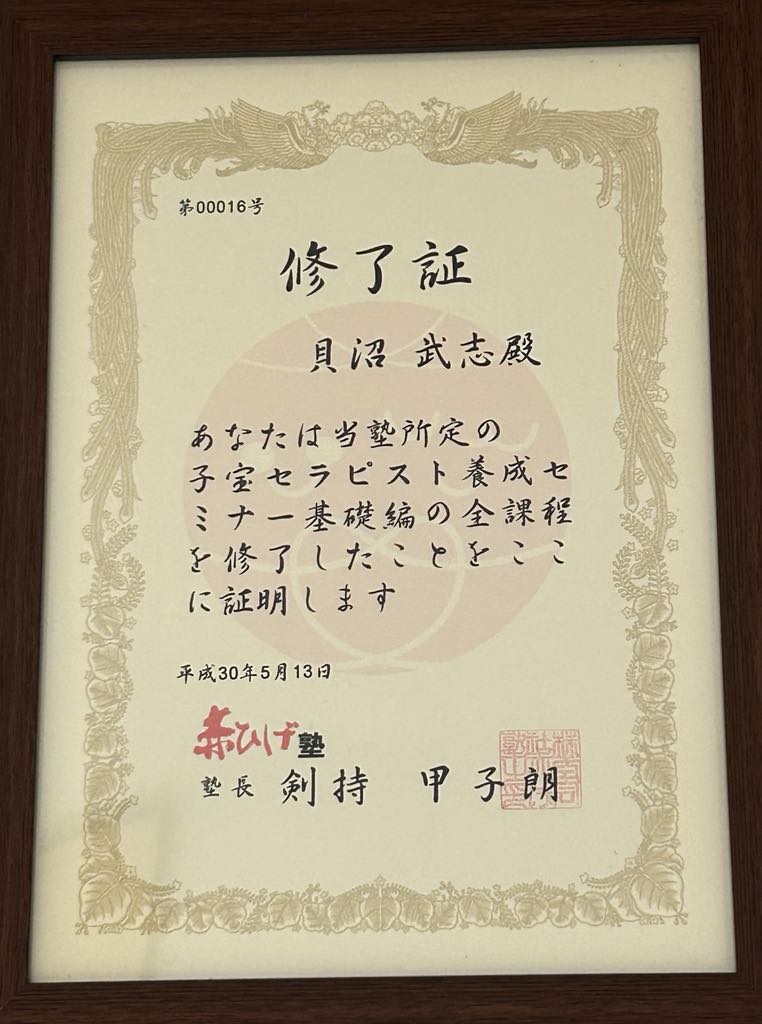 第00016号
修了証
貝沼 武志殿
あなたは当塾所定の
子宝セラピスト養成セ
ミナー基礎編の全課程
を修了したことをここ
に証明します
平成30年5月13日
赤ひげ塾
塾長 剣持 甲子朗